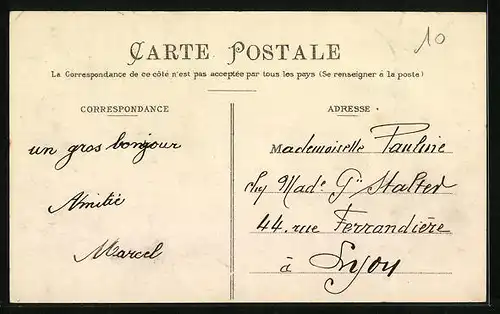 10
CARTE POSTALE
La Correspondance de ce côté n'est pas acceptée par tous les pays (Se renseigner à la poste)
CORRESPONDANCE
un gros bonjour
Amitié
Marcel
ADRESSE
Mademoiselle Pauline
Made Stalter
44. rue Ferrandière
à Lyon